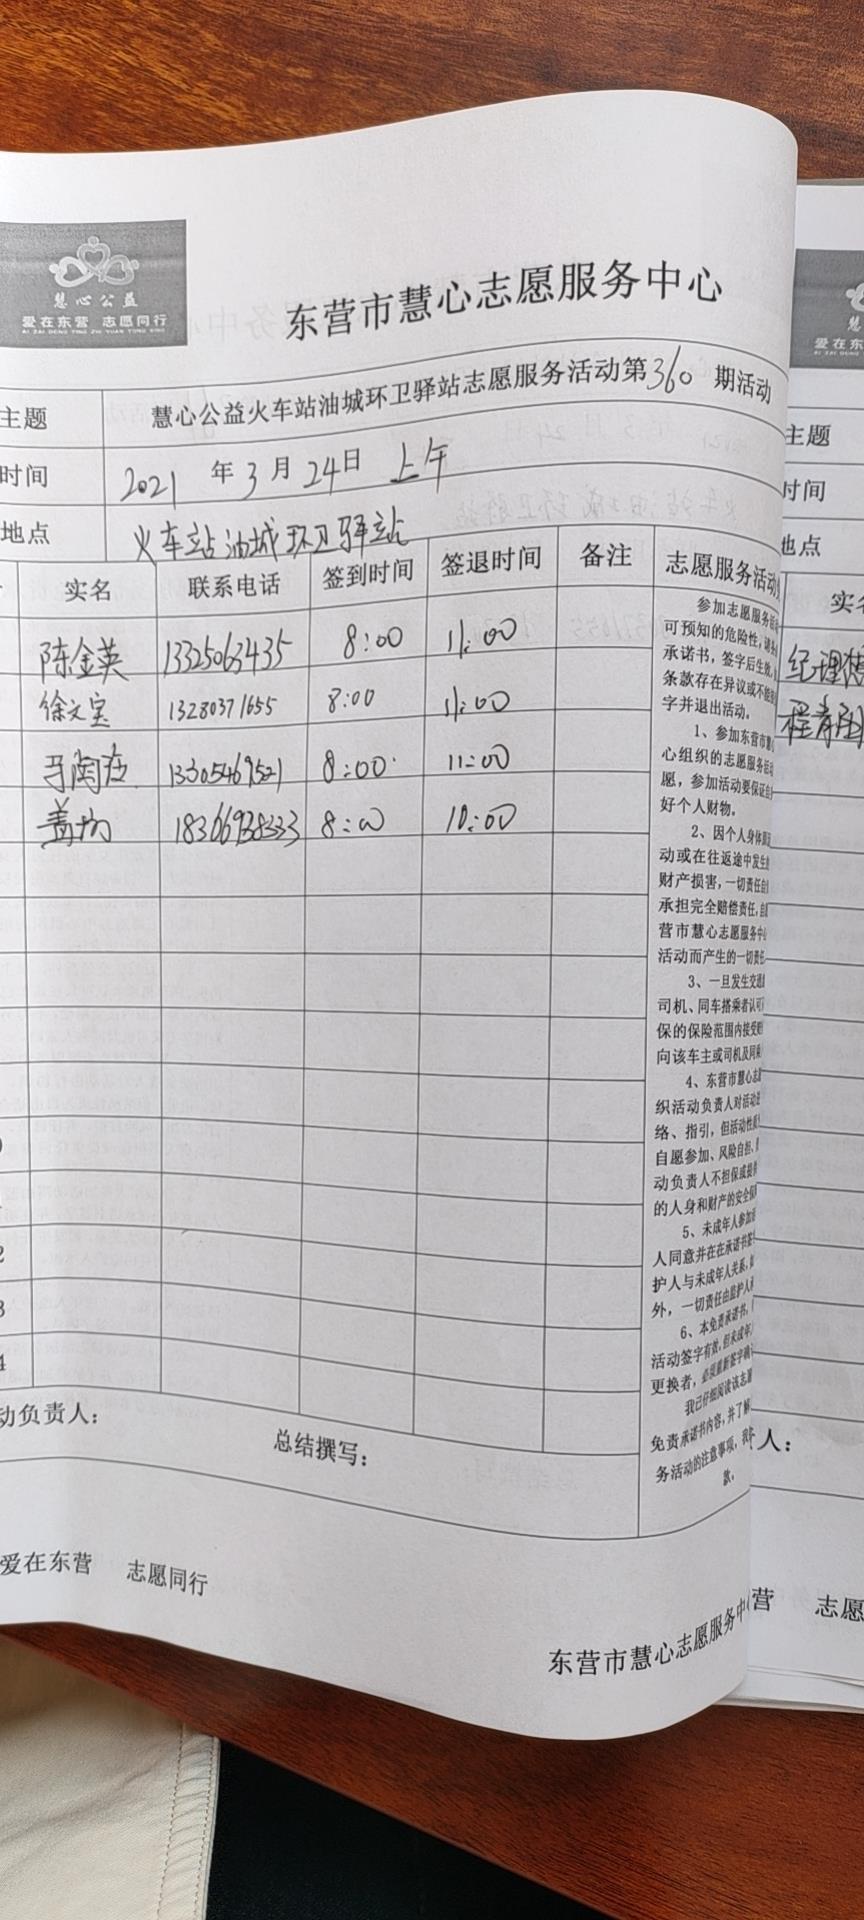 慧心公益
爱在东营 志愿同行
AI ZAI DONG YING ZHI YUAN TONG XING
东营市慧心志愿服务中心
主题 慧心公益火车站油城环卫驿站志愿服务活动第360期活动
时间 2021年3月24日 上午
地点 火车站油城环卫驿站
实名 联系电话 签到时间 签退时间 备注 志愿服务活动
陈金英 13325063435 8:00 11:00
徐文宝 13280371655 8:00 11:00
13305469521 8:00 11:00
盖均 18366938333 8:00 10:00
2
3
4
动负责人: 总结撰写:
参加志愿服务活
可预知的危险性,请务
承诺书,签字后生效,
条款存在异议或不能
字并退出活动。
1、参加东营市慧
心组织的志愿服务活动
愿,参加活动要保证自
好个人财物。
2、因个人身体原
动或在往返途中发生
财产损害,一切责任自
承担完全赔偿责任,自
营市慧心志愿服务中心
活动而产生的一切责任
3、一旦发生交通
司机、同车搭乘者认可
保的保险范围内接受
向该车主或司机及同
4、东营市慧心志
织活动负责人对活动
络、指引,但活动性质
自愿参加、风险自担、
动负责人不担保或提
的人身和财产的安全保
5、未成年人参加
人同意并在在承诺书签
护人与未成年人关系,
外,一切责任由监护人
6、本免责承诺书,
活动签字有效,但未成年
更换者,必须重新签字确
我已仔细阅读该志愿
免责承诺书内容,并了解
务活动的注意事项,我
款。
爱在东营 志愿同行
东营市慧心志愿服务中
爱在东
主题
时间
地点
实名
纪理
程青
人:
营 志愿